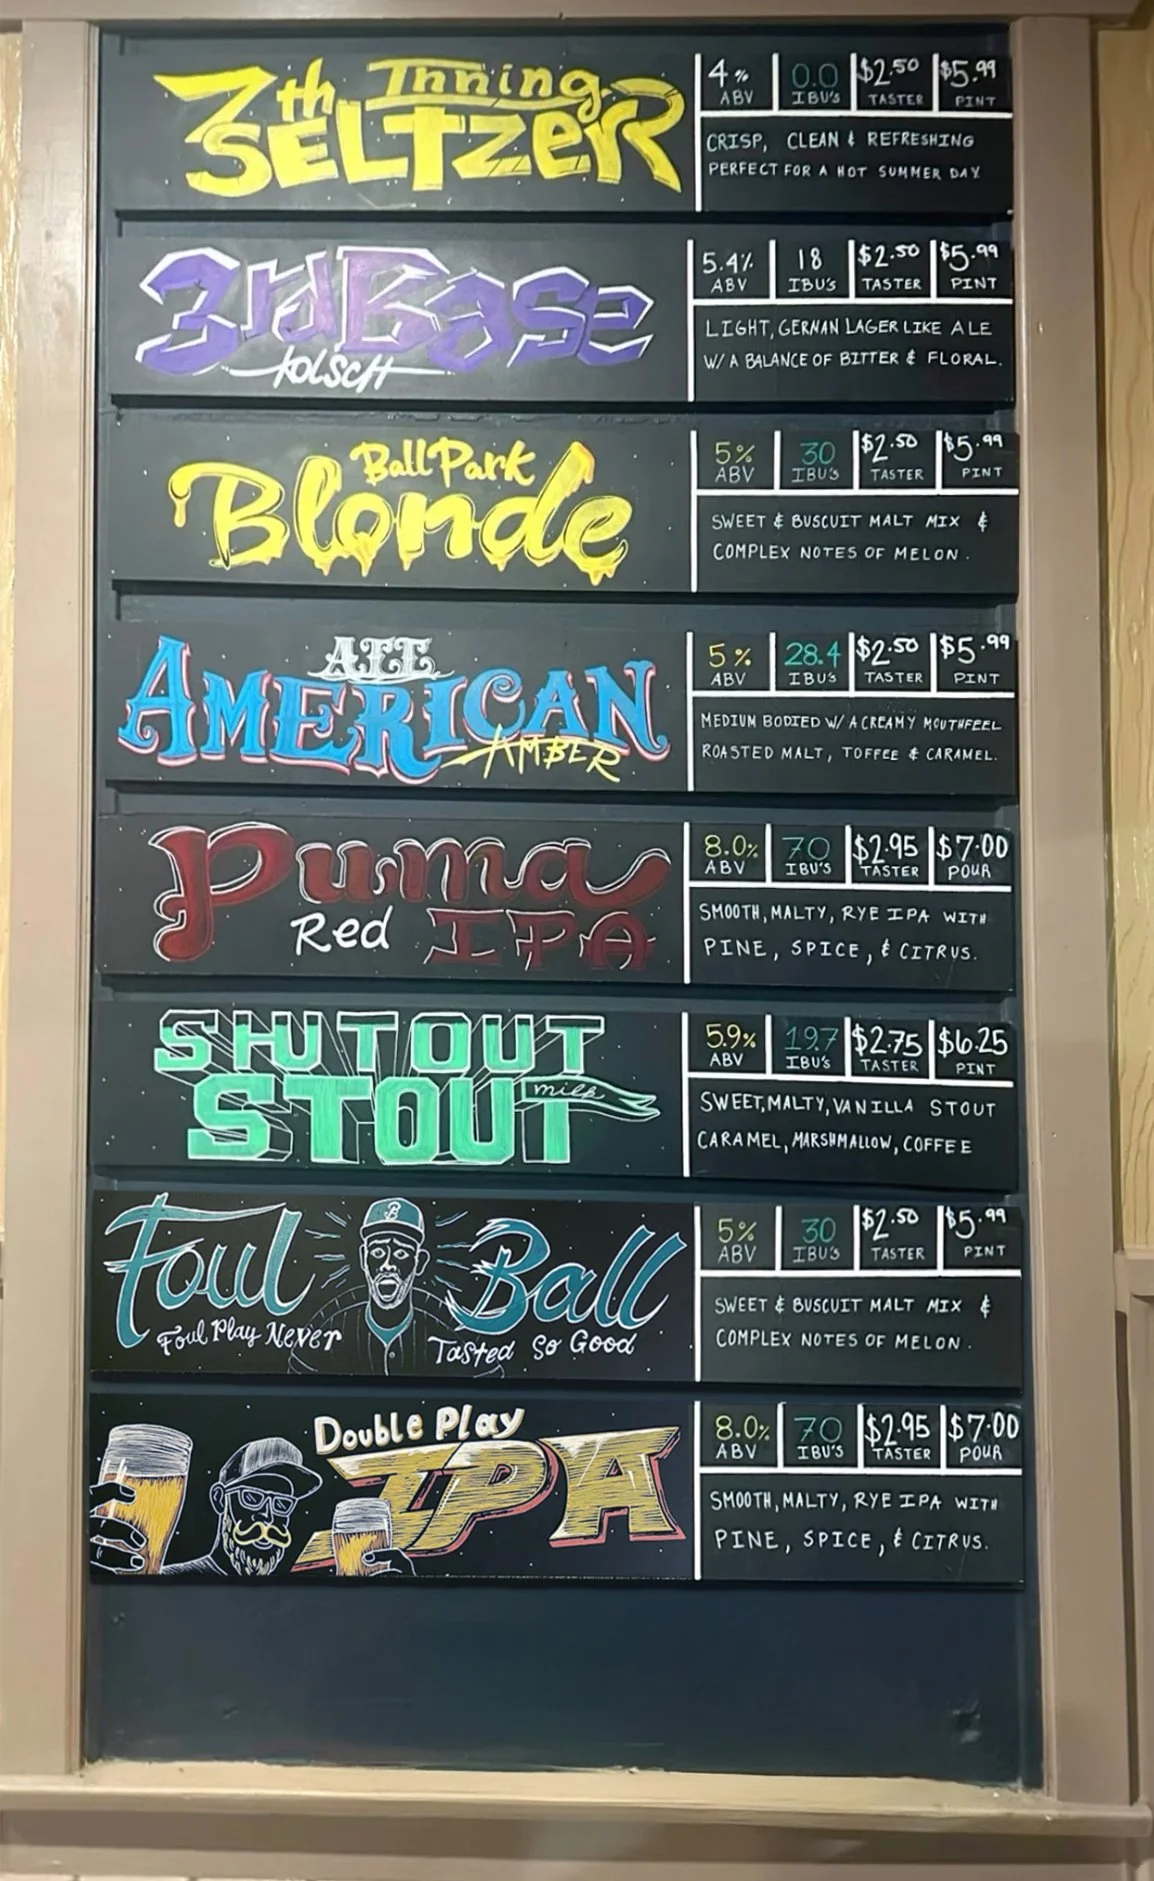 7th Inning
SELTZER
4% ABV
0.0 IBU's
$2.50 TASTER
$5.99 PINT
CRISP, CLEAN & REFRESHING
PERFECT FOR A HOT SUMMER DAY
3rd Base
KOLSCH
5.4% ABV
18 IBU's
$2.50 TASTER
$5.99 PINT
LIGHT, GERMAN LAGER LIKE ALE
W/ A BALANCE OF BITTER & FLORAL.
Ball Park
Blonde
5% ABV
30 IBU's
$2.50 TASTER
$5.99 PINT
SWEET & BUSCUIT MALT MIX &
COMPLEX NOTES OF MELON.
AMERICAN
AMBER
5% ABV
28.4 IBU's
$2.50 TASTER
$5.99 PINT
MEDIUM BODIED W/ A CREAMY MOUTHFEEL
ROASTED MALT, TOFFEE & CARAMEL.
Puma
Red IPA
8.0% ABV
70 IBU's
$2.95 TASTER
$7.00 POUR
SMOOTH, MALTY, RYE IPA WITH
PINE, SPICE, & CITRUS.
SHUTOUT
milk
STOUT
5.9% ABV
19.7 IBU's
$2.75 TASTER
$6.25 PINT
SWEET, MALTY, VANILLA STOUT
CARAMEL, MARSHMALLOW, COFFEE
B
Foul Ball
Foul Play Never Tasted So Good
5% ABV
30 IBU's
$2.50 TASTER
$5.99 PINT
SWEET & BUSCUIT MALT MIX &
COMPLEX NOTES OF MELON.
Double Play
IPA
8.0% ABV
70 IBU's
$2.95 TASTER
$7.00 POUR
SMOOTH, MALTY, RYE IPA WITH
PINE, SPICE, & CITRUS.